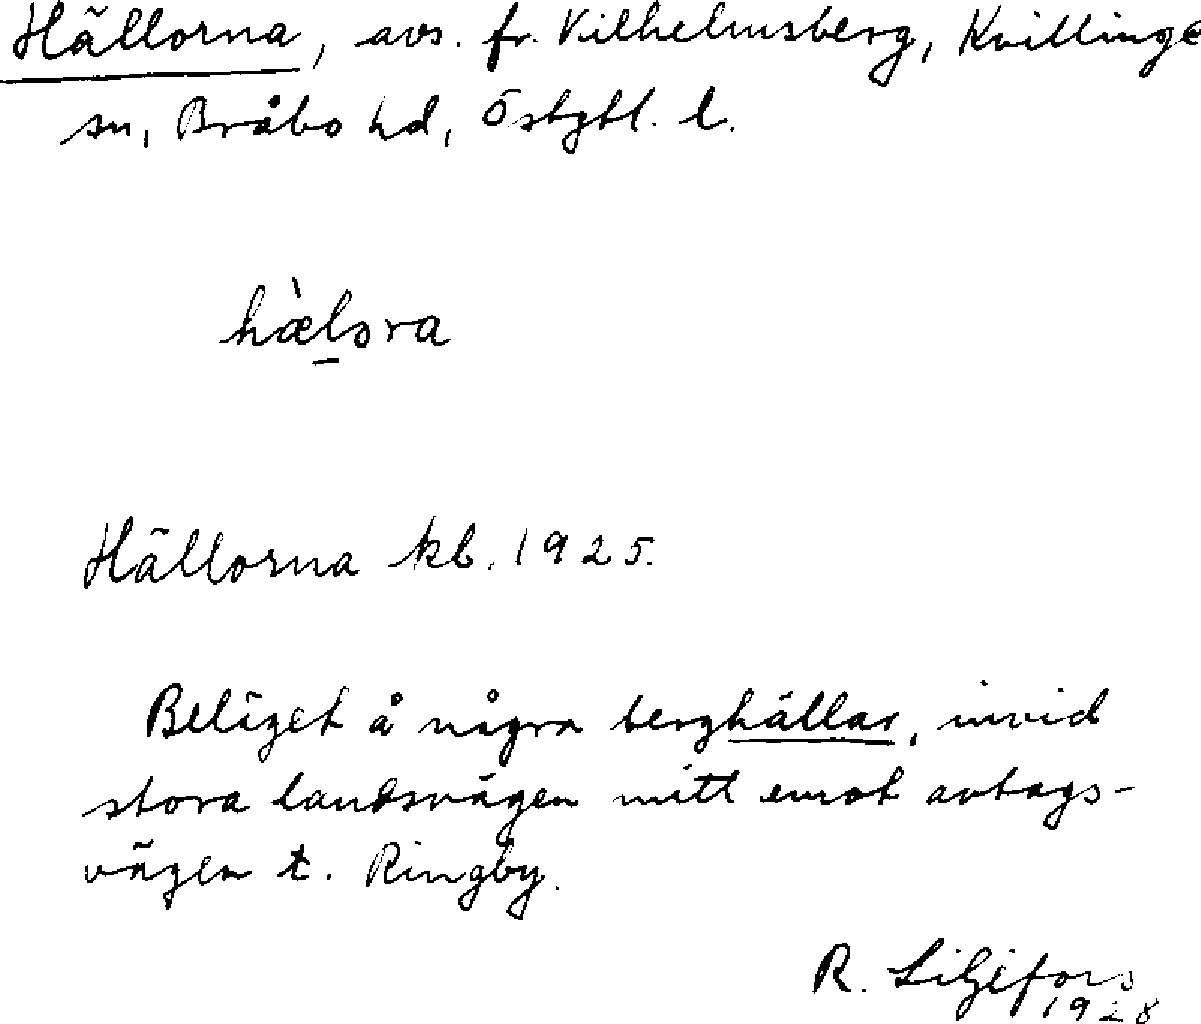 Hällorna, avs. fr. Vilhelmsberg, Kvillinge
sn, Bråbo hd, Östgtl. l.
hæ̀lo̱ra
Hällorna kb. 1925.
Beläget å några berghällar, invid
stora landsvägen mitt emot avtags-
vägen t. Ringby.
R. Liljefors
1928